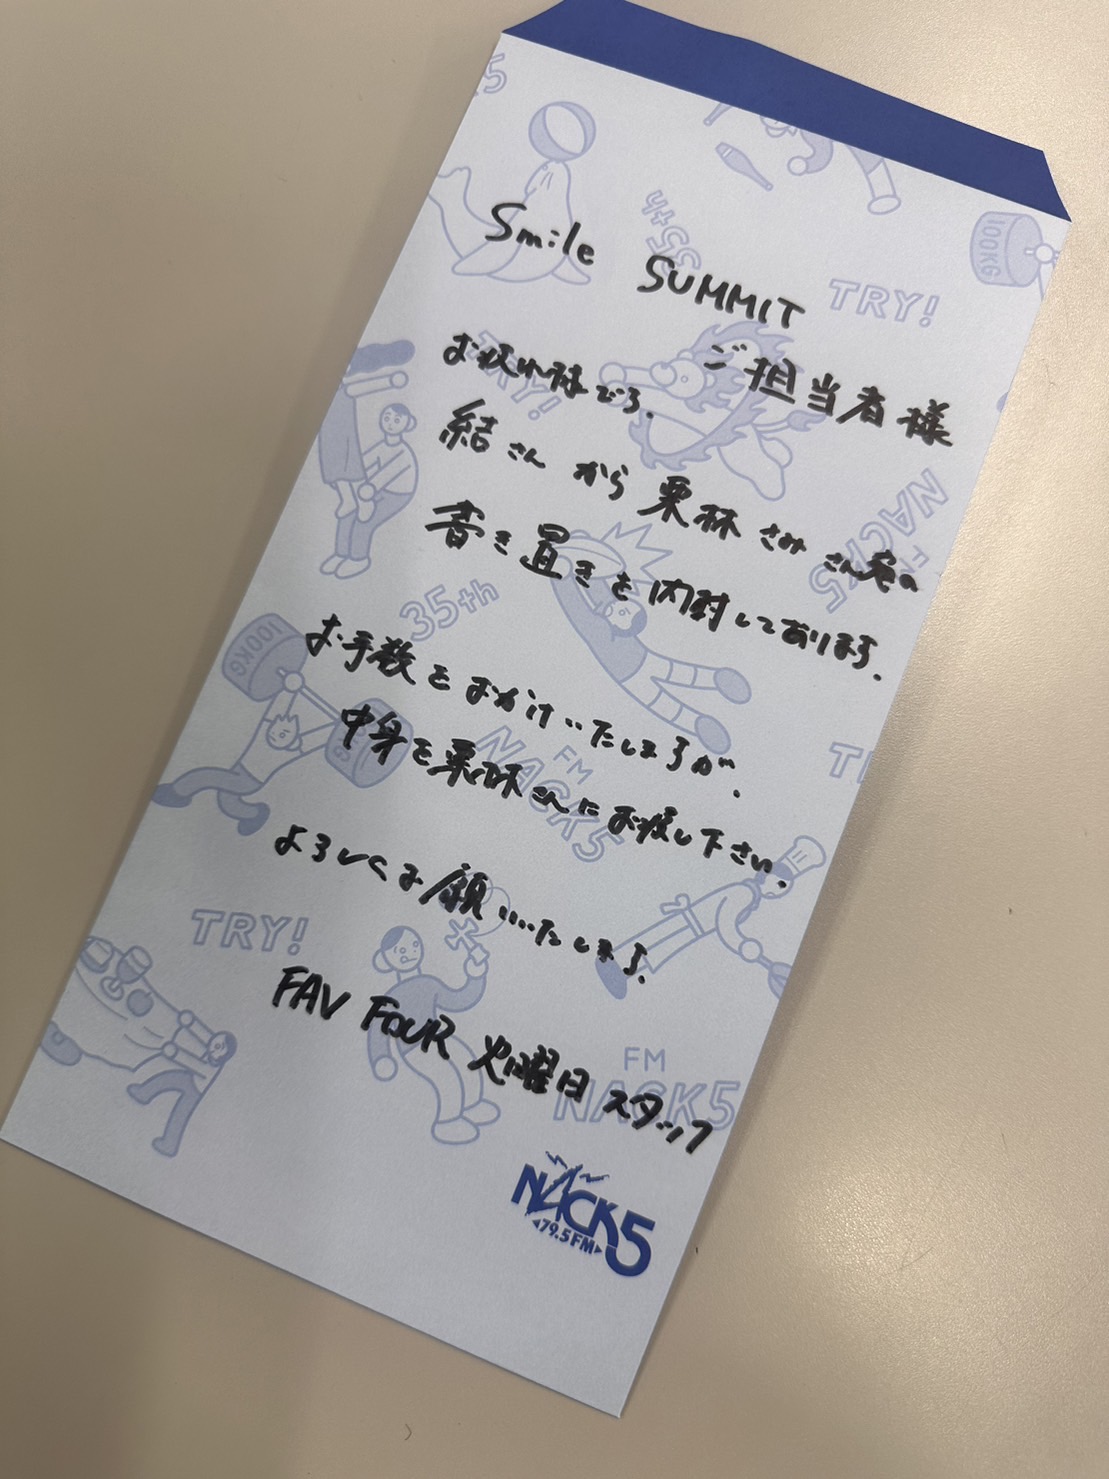 Smile SUMMIT
ご担当者様
お疲れ様です。
結さんから栗林さみさん宛の
書き置きを内封してあります。
お手数をおかけいたしますが、
中身を栗林さんにお渡し下さい。
よろしくお願いいたします。
FAV FOUR 火曜日スタッフ
NACK5
79.5FM
TRY!
TRY!
TRY!
35th
35th
100KG
100KG
FM NACK5
FM NACK5
FM
NACK5